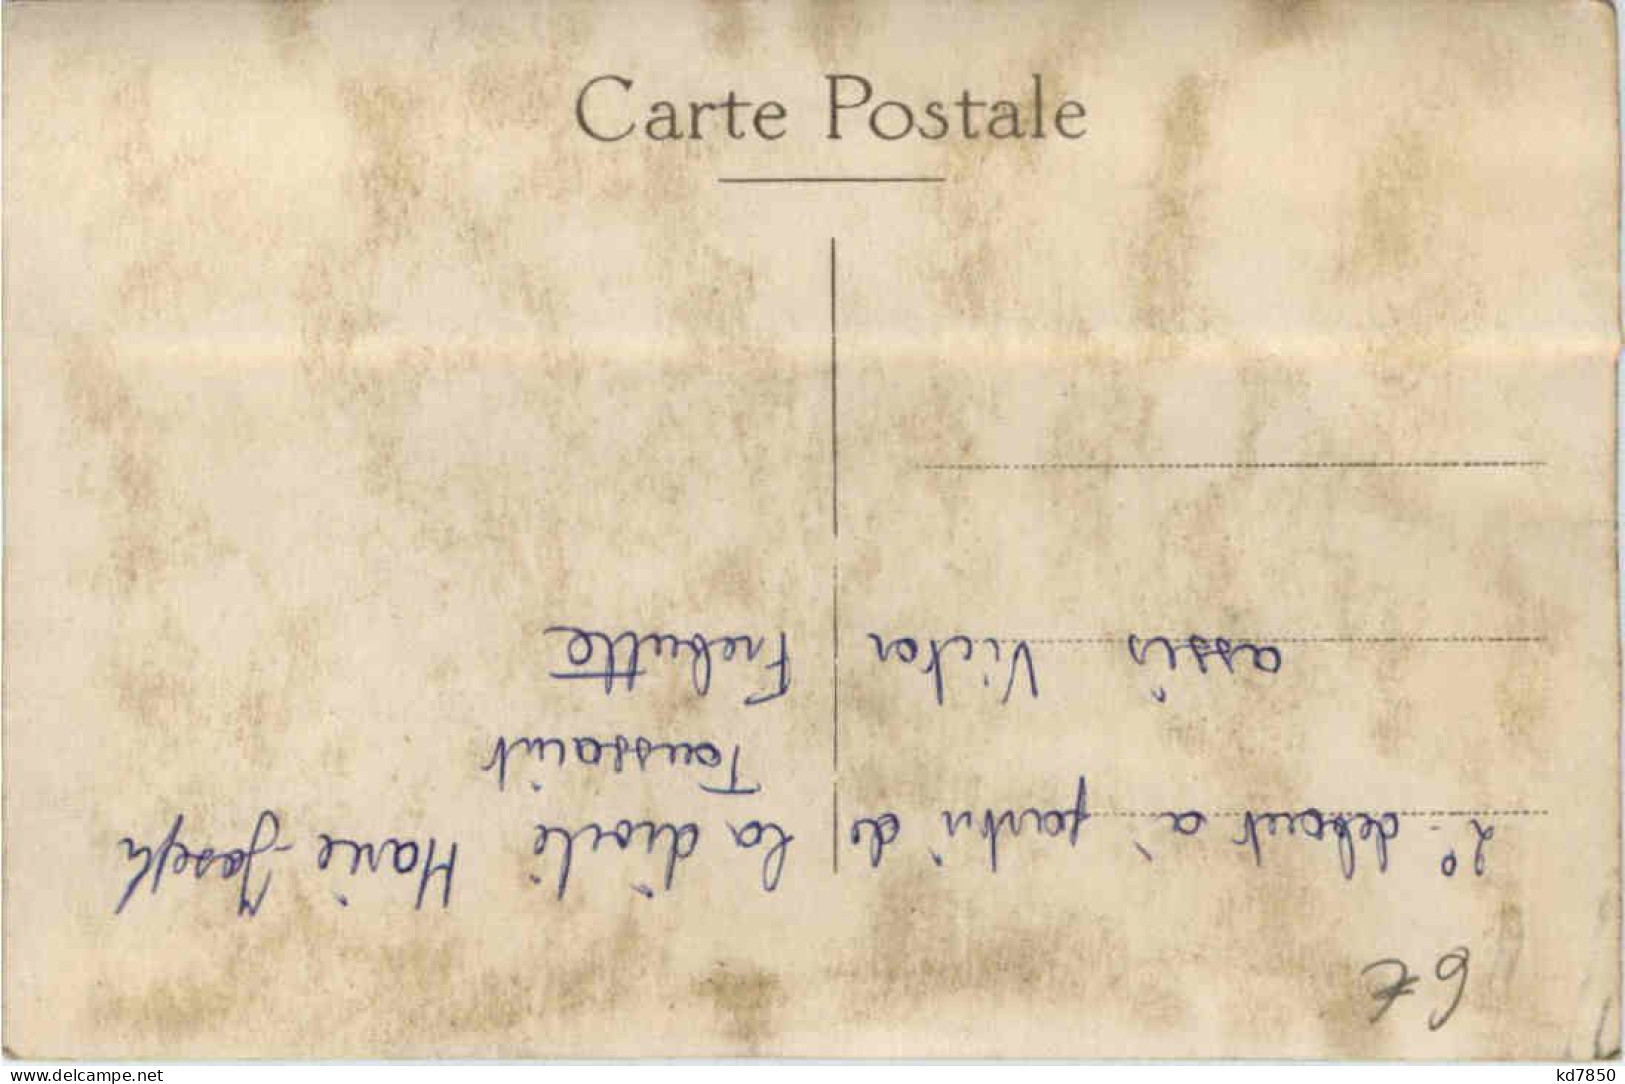 Carte Postale
2° debout à partir de la droite Marie-Joseph
Toussaint
assis Victor Frebutte
6€
delcampe.net
kd7850